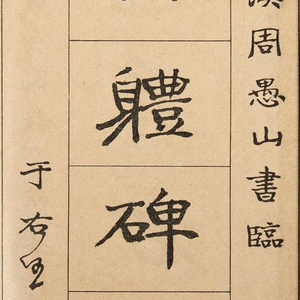 周愚山書臨
軆碑
于右任